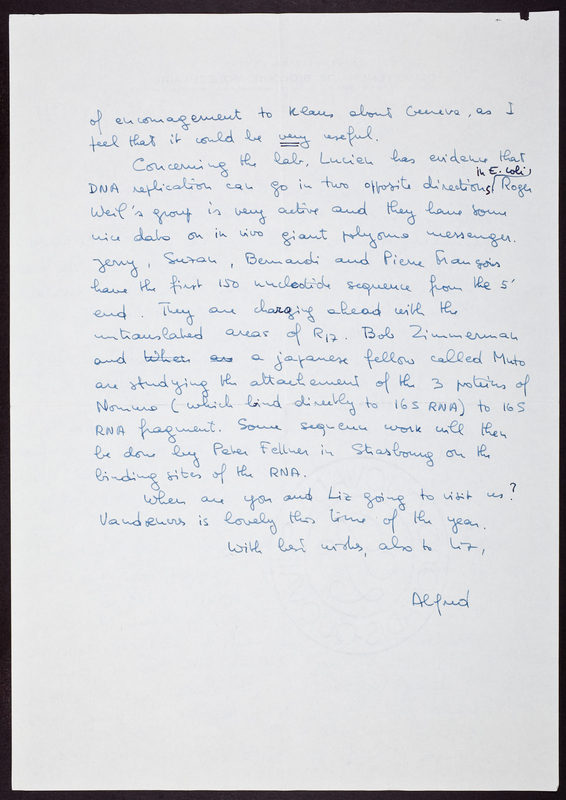 of encouragement to Klaus about Geneva, as I
feel that it could be very useful.
Concerning the lab, Lucien has evidence that
in E. coli,
DNA replication can go in two opposite directions, Roger
Weil's group is very active and they have some
nice data on in vivo giant polyoma messenger.
Jerry, Suzan, Bernardi and Pierre François
have the first 150 nucleotide sequence from the 5'
end. They are charging ahead with the
untranslated areas of R17. Bob Zimmerman
and a japanese fellow called Muto
are studying the attachement of the 3 proteins of
Nomura (which bind directly to 16S RNA) to 16S
RNA fragment. Some sequence work will then
be done by Peter Fellner in Strasbourg on the
binding sites of the RNA.
When are you and Liz going to visit us?
Vandœuvres is lovely this time of the year.
With best wishes, also to Liz,
Alfred